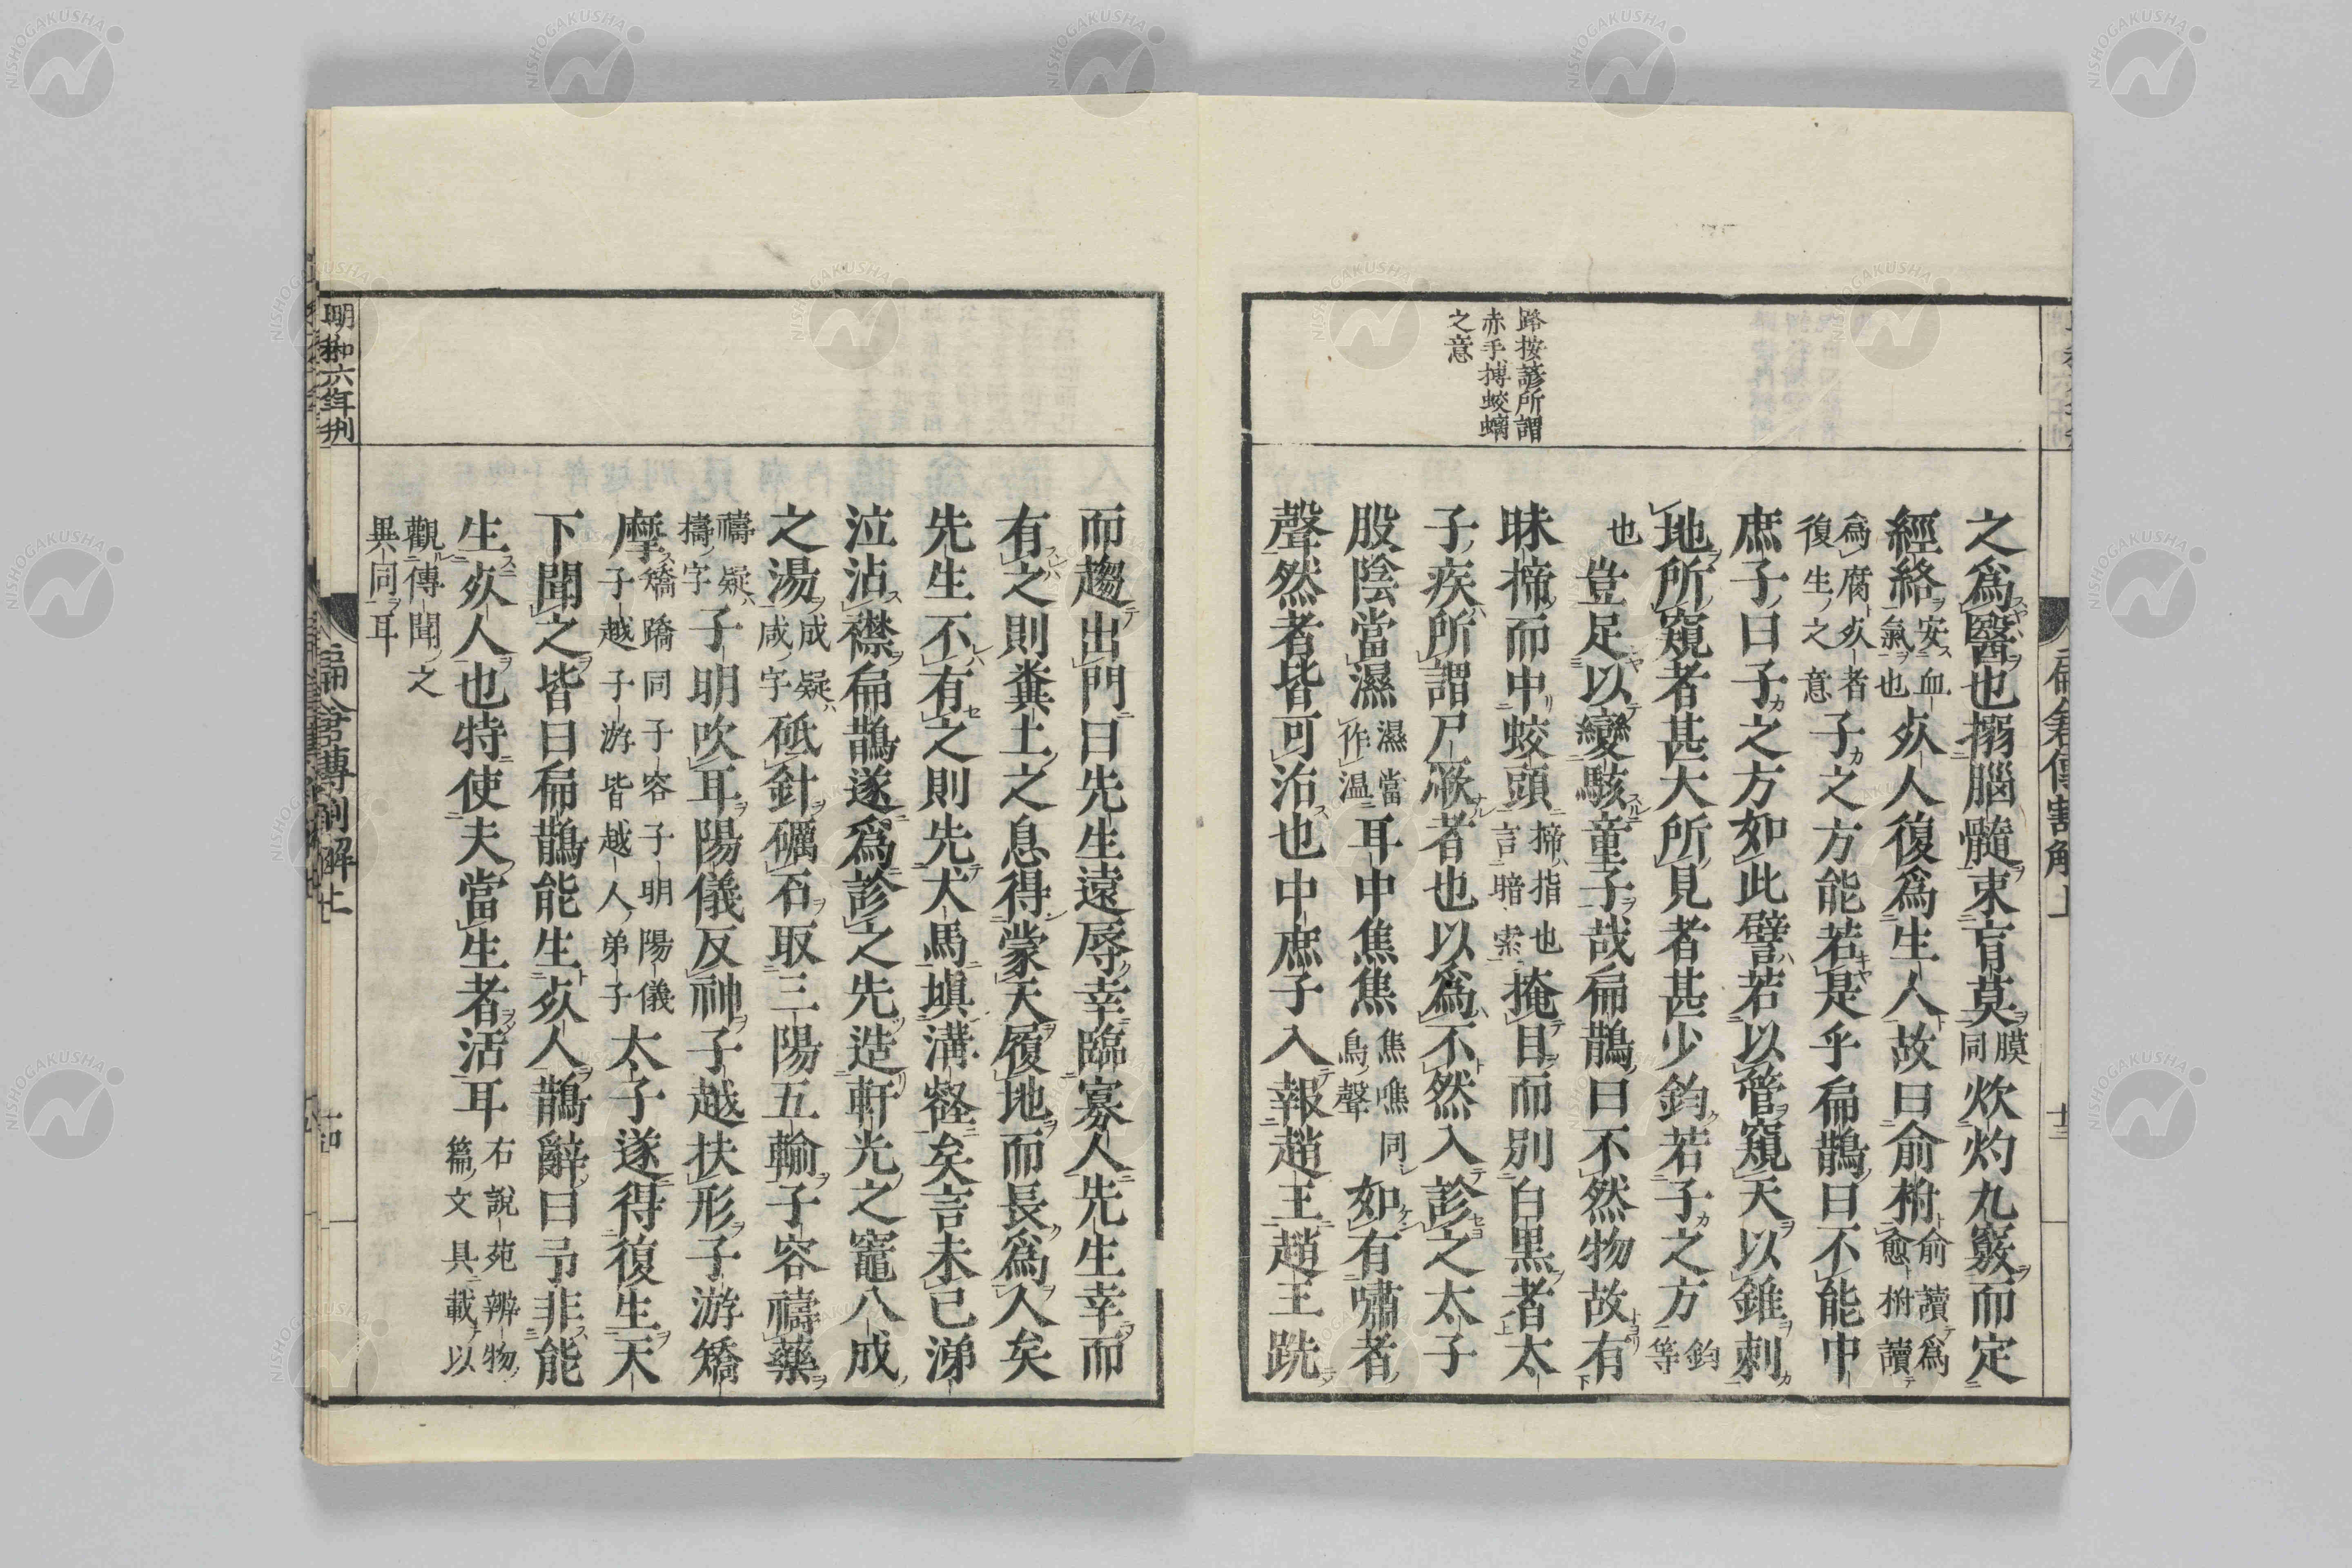 路按諺所謂
赤手搏蛟螭
之意
之爲醫也搦腦髓束肓莫膜同炊灼九竅而定
經絡安血氣也㱙人復爲生人故曰俞柎俞讀爲愈柎讀
爲腐㱙者復生之意子之方能若是乎扁鵲曰不能中
庶子曰子之方如此譬若以管窺天以錐刺
地所窺者甚大所見者甚少鈞若子之方鈞等
也豈足以變駭童子哉扁鵲曰不然物故有
昧揥而中蛟頭揥指也言暗索掩目而別白黒者太
子疾所謂尸厥者也以爲不然入診之太子
股陰當濕濕當作温耳中焦焦焦噍同鳥聲如有嘯者
聲然者皆可治也中庶子入報趙王趙王跣
而趨出門曰先生遠辱幸臨寡人先生幸而
有之則糞土之息得蒙天履地而長爲人矣
先生不有之則先犬馬塡溝壑矣言未已涕
泣沾襟扁鵲遂爲診之先造軒光之竈八成
之湯成疑咸字砥針礪石取三陽五輸子容禱藥
禱疑擣字子明吹耳陽儀反神子越扶形子游矯
摩矯蹻同子容子明陽儀子越子游皆越人弟子太子遂得復生天
下聞之皆曰扁鵲能生㱙人鵲辭曰予非能
生㱙人也特使夫當生者活耳右說苑辨物篇文具載以
觀傳聞之
異同耳
明和六年刋
扁倉傳割解上
十四